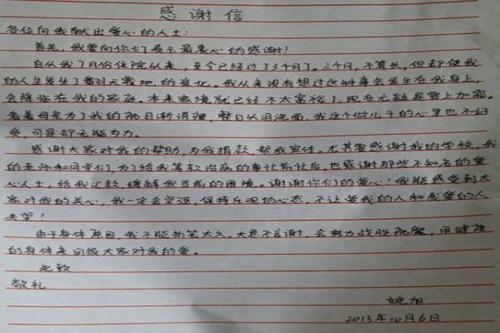 感谢信
各位向我献出爱心的人士:
首先,我要向你们表示最衷心的感谢!
自从我7月份住院以来,至今已经过了3个月。三个月,不算长,但却使我
的人生发生了翻天覆地的变化。我从来没有想过这种事会发生在我身上,
会降临在我的家庭。本来家境就已经不太富裕了,现在无疑是雪上加霜。
看着母亲为了我的病日渐消瘦,整日以泪洗面,我这个做儿子的心里也不好
受,可是却无能为力。
感谢大家对我的帮助,为我捐款,帮我宣传。尤其要感谢我的学校,我
的老师和同学们,为了给我筹款治病的事忙前忙后,也感谢那些不知名的爱
心人士,给我汇款,缓解我当前的困境。谢谢你们的爱心!我能感受到大
家对我的关心,我一定会坚强,保持乐观的心态,不让爱我的人和我爱的人
失望!
由于身体原因,我不能执笔太久。大恩不言谢,会努力战胜病魔,用健康
的身体来回报大家对我的爱。
此致
敬礼
姚旭
2013年10月6日